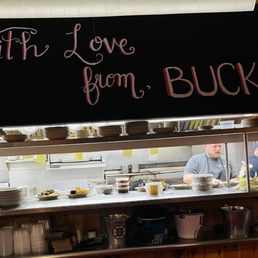 ith Love
from, BUCK